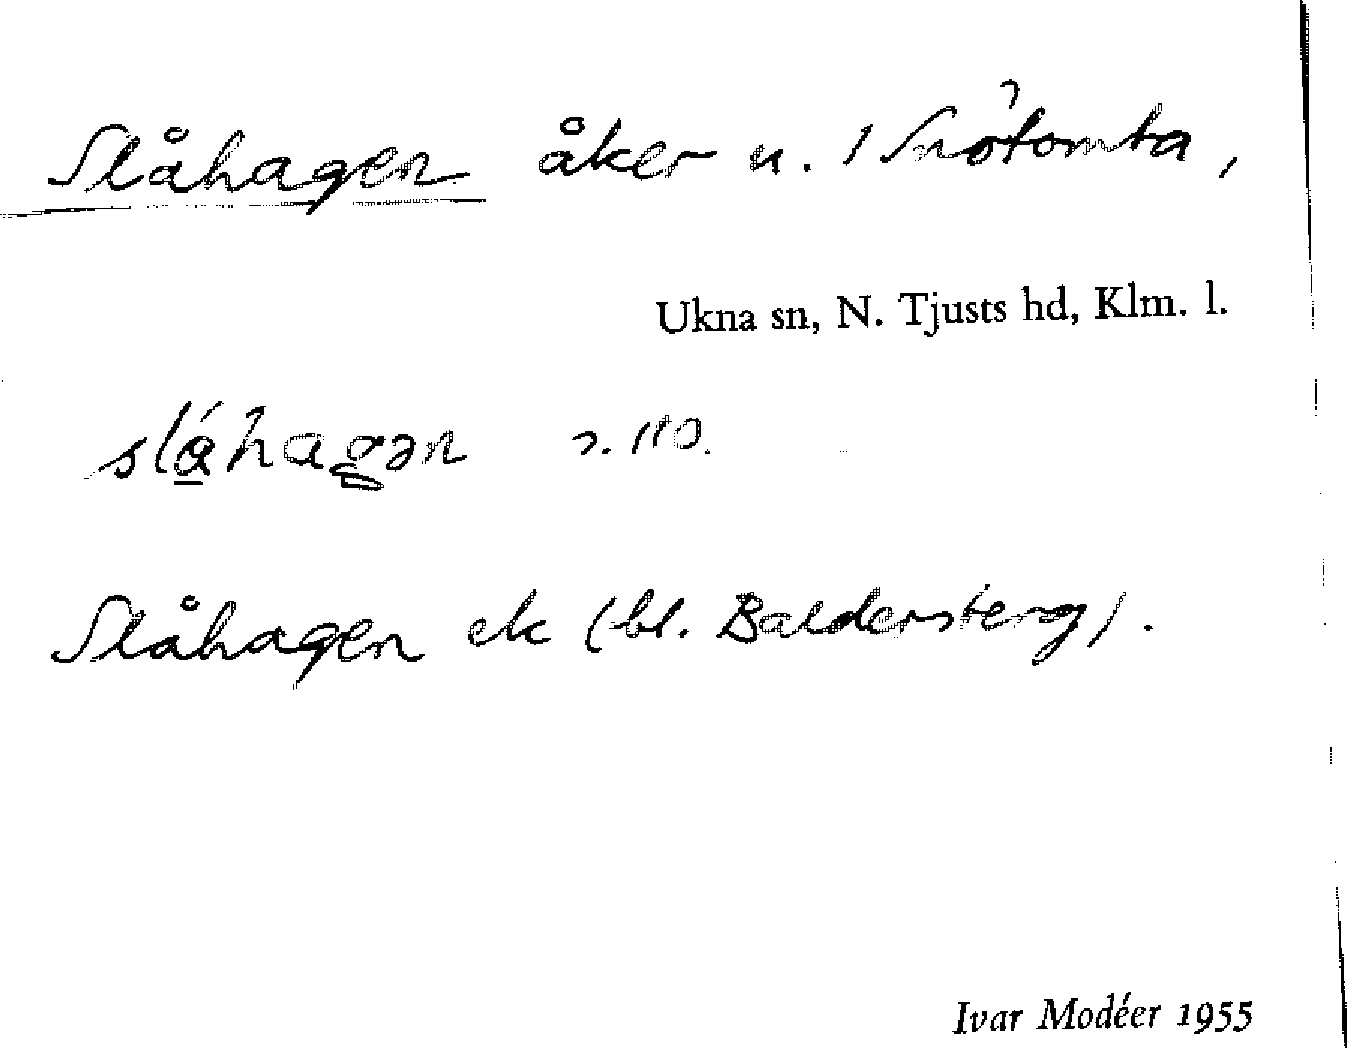 Slåhagen åker u. 1 Snötomta,
Ukna sn, N. Tjusts hd, Klm. l.
slåhagən s. 110.
Slåhagen ek (bl. Baldersberg).
Ivar Modéer 1955